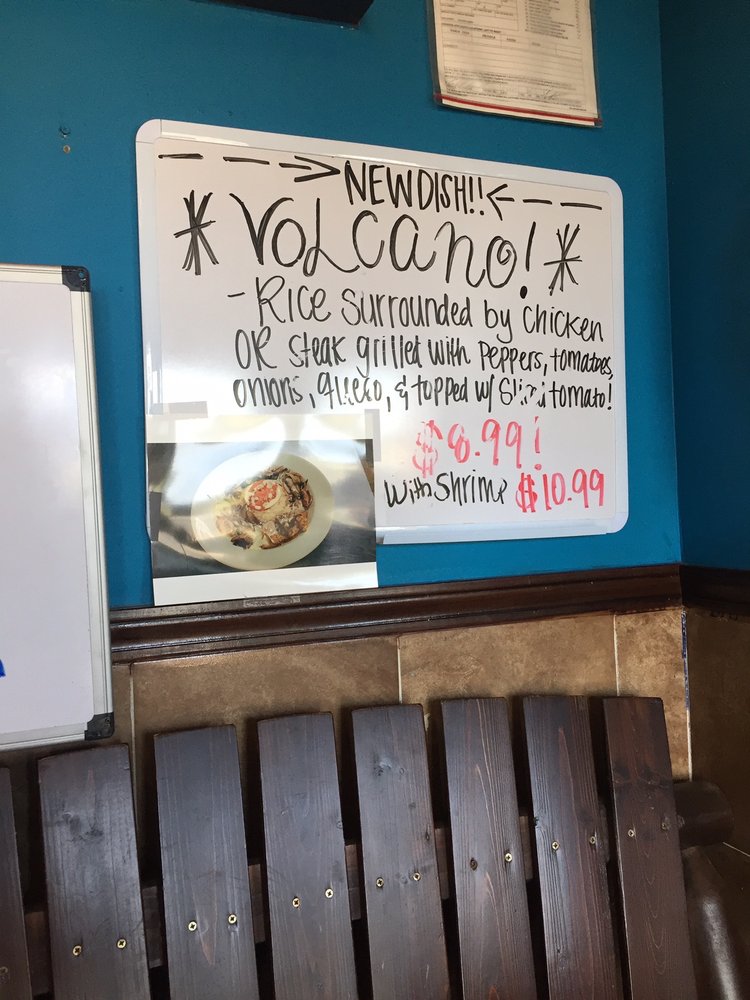 --->NEW DISH!!<---
*VOLCANO!*
-Rice surrounded by chicken
OR steak grilled with peppers, tomatoes,
onions, queso, & topped w/ tomato!
$8.99!
with shrimp $10.99